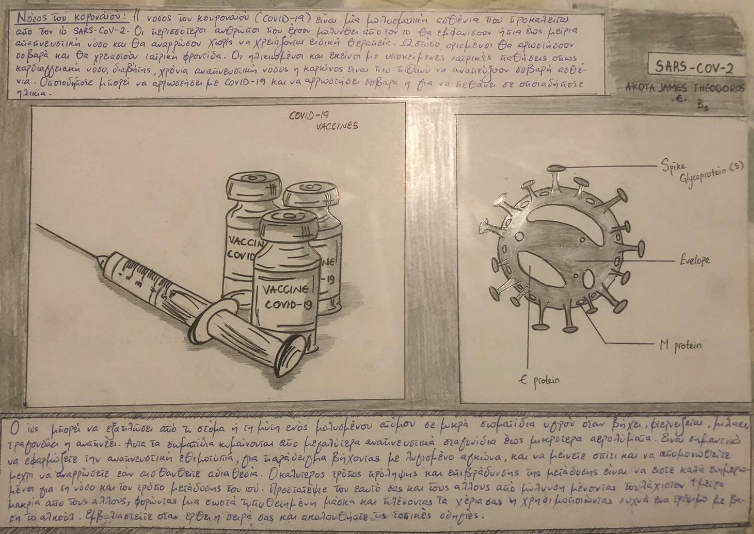 Νόσος του κορονοϊού: Η νόσος του κορωναϊού (COVID-19) είναι μία μολυσματική ασθένεια που προκαλείται
από τον ιό SARS-CoV-2. Οι περισσότεροι άνθρωποι που έχουν μολυνθεί από τον ιό θα εμφανίσουν ήπια έως μέτρια
αναπνευστική νόσο και θα αναρρώσουν χωρίς να χρειάζονται ειδική θεραπεία. Ωστόσο, ορισμένοι θα αρρωστήσουν
σοβαρά και θα χρειαστούν ιατρική φροντίδα. Οι ηλικιωμένοι και εκείνοι με υποκείμενες ιατρικές παθήσεις όπως
καρδιαγγειακή νόσο, διαβήτης, χρόνια αναπνευστική νόσος ή καρκίνος είναι πιο πιθανό να αναπτύξουν σοβαρή ασθέ-
νεια. Οποιοσδήποτε μπορεί να αρρωστήσει με COVID-19 και να αρρωστήσει σοβαρά ή για να πεθάνει σε οποιαδήποτε
ηλικία.
SARS-COV-2
AKOTA JAMES THEODOROS
COVID-19
VACCINES
VACCIN
COVID
NE
-19
VACCINE
COVID-19
Spike
Glycoprotein (S)
Evelope
M protein
E protein
Ο ιός μπορεί να εξαπλώσει από τι στόμα ή τη μύτη ενός μολυσμένου ατόμου σε μικρά σωματίδια υγρού όταν βήχει, φτερνίζεται, μιλάει,
τραγουδάει ή αναπνέει. Αυτά τα σωματίδια κυμαίνονται από μεγαλύτερα αναπνευστικά σταγονίδια έως μικρότερα αερολύματα. Είναι σημαντικό
να εφαρμόζετε την αναπνευστική εθιμοτυπία, για παράδειγμα βήχοντας με λυγισμένο αγκώνα, και να μείνετε σπίτι και να απομονωθείτε
μέχρι να αναρρώσετε εάν αισθανθείτε αδιαθεσία. Ο καλύτερος τρόπος πρόληψης και επιβράδυνσης της μετάδοσης είναι να είστε καλά ενημερω-
μένοι για τη νόσο και τον τρόπο μετάδοσης του ιού. Προστατέψτε τον εαυτό σας και τους άλλους από μόλυνση μένοντας τουλάχιστον 1 μέτρο
μακριά από τους άλλους, φορώντας μια σωστά τοποθετημένη μάσκα και πλένοντας τα χέρια σας ή χρησιμοποιώντας συχνά ένα τρίψιμο με βά-
ση το αλκοόλ. Εμβολιαστείτε όταν έρθει η σειρά σας και ακολουθήστε τις τοπικές οδηγίες.